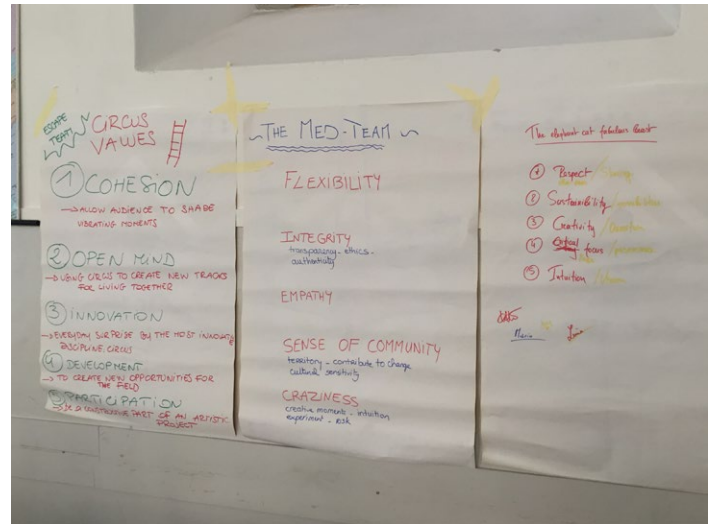 ESCAPE
TEAM
CIRCUS
VALUES
1 COHESION
→ ALLOW AUDIENCE TO SHARE
VIBRATING MOMENTS
2 OPEN MIND
→ USING CIRCUS TO CREATE NEW TRACKS
FOR LIVING TOGETHER
3 INNOVATION
→ EVERYDAY SURPRISE BY THE MOST INNOVATIVE
DISCIPLINE, CIRCUS
4 DEVELOPMENT
→ TO CREATE NEW OPPORTUNITIES FOR
THE FIELD
5 PARTICIPATION
PART OF AN ARTISTIC
PROJECT
~ THE MED-TEAM ~
FLEXIBILITY
INTEGRITY
transparency - ethics -
authenticity
EMPATHY
SENSE OF COMMUNITY
territory - contribute to change
cultural sensitivity
CRAZINESS
creative moments - intuition
experiment - risk
The elephant cat fabulous Beast
1 Respect
2 Sustainability
3 Creativity
4 focus
5 Intuition